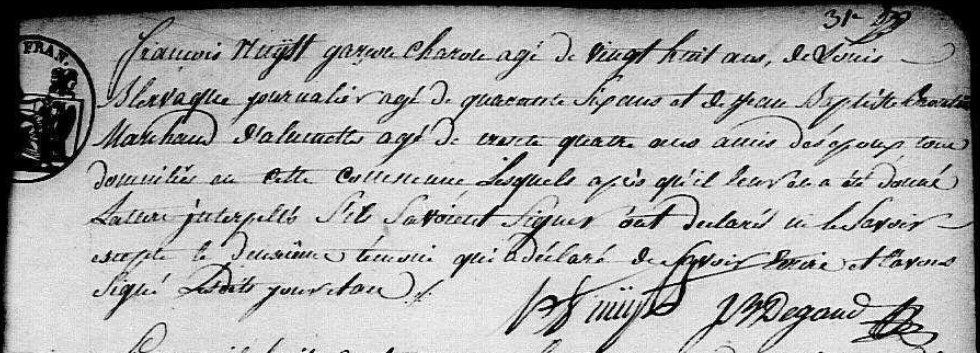 31
FRAN.
François Nuÿtt garçon charon agé de vingt huit ans, de Louis
Blervaque journalier agé de quarante six ans et de jean Baptiste
Marchand d'alumettes agé de trente quatre ans amis des époux tous
domiciliés en cette commune lesquels après qu'il leur en a été donné
Lecture interpellés s'ils savoient signer ont declarés ne le savoir
excepté le deuxième témoin qui a déclaré de savoir Ecrire et l'avons
signé lesdits jour et an
Nuÿtt JB Degand